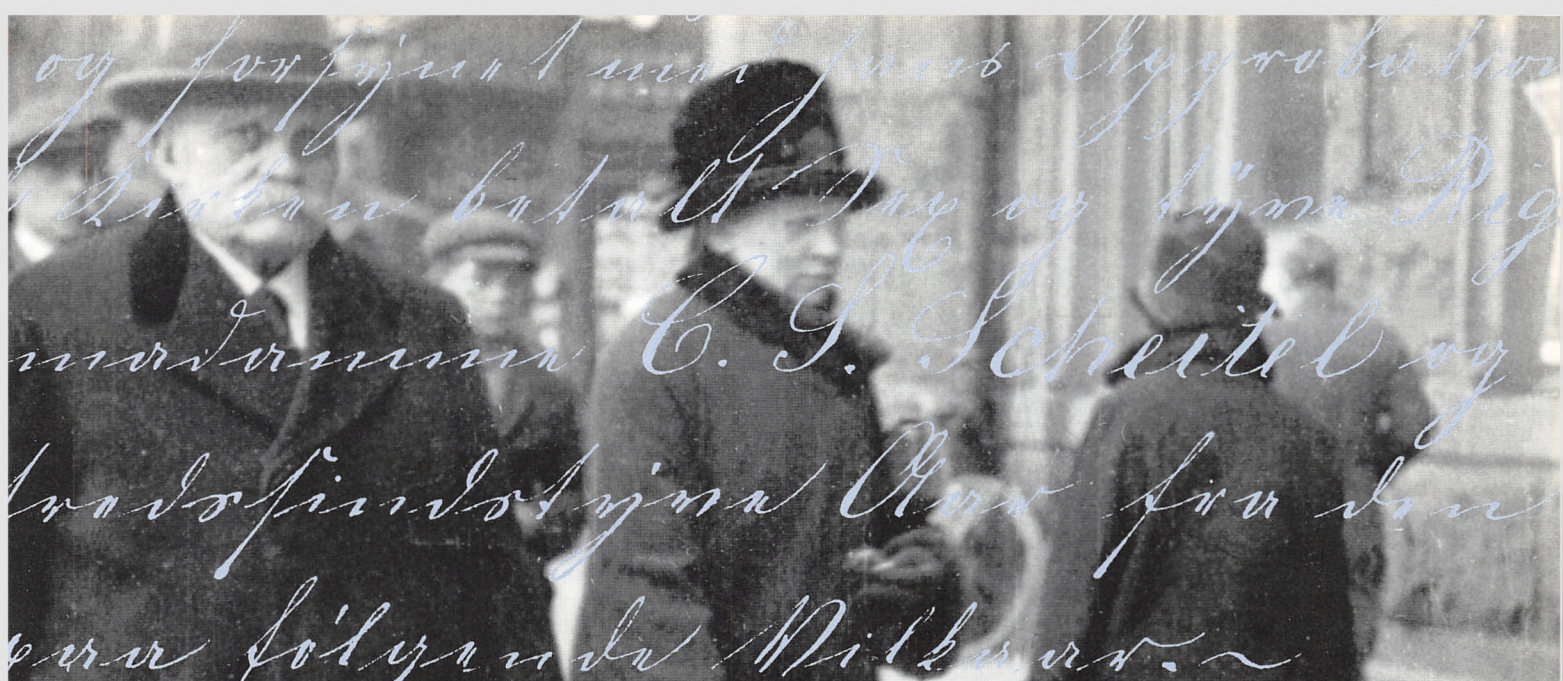 og forsynet med hans Approbation
Kirken betalt Sex og tyve Rig
madamme C. S. Scheitel og
tredsindstyve Aar fra den
paa følgende Vilkaar.~